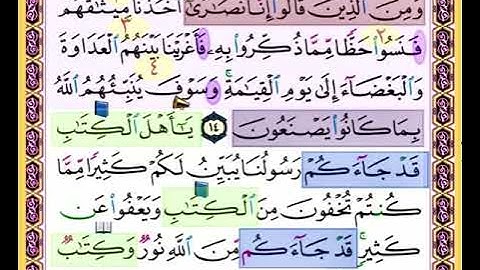 وَمِنَ ٱلَّذِينَ قَالُوٓا۟ إِنَّا نَصَـٰرَىٰٓ أَخَذْنَا مِيثَـٰقَهُمْ
فَنَسُوا۟ حَظًّا مِّمَّا ذُكِّرُوا۟ بِهِۦ فَأَغْرَيْنَا بَيْنَهُمُ ٱلْعَدَاوَةَ
وَٱلْبَغْضَآءَ إِلَىٰ يَوْمِ ٱلْقِيَـٰمَةِ ۚ وَسَوْفَ يُنَبِّئُهُمُ ٱللَّهُ
بِمَا كَانُوا۟ يَصْنَعُونَ ١٤ يَـٰٓأَهْلَ ٱلْكِتَـٰبِ
قَدْ جَآءَكُمْ رَسُولُنَا يُبَيِّنُ لَكُمْ كَثِيرًا مِّمَّا
كُنتُمْ تُخْفُونَ مِنَ ٱلْكِتَـٰبِ وَيَعْفُوا۟ عَن
كَثِيرٍ ۚ قَدْ جَآءَكُم مِّنَ ٱللَّهِ نُورٌ وَكِتَـٰبٌ